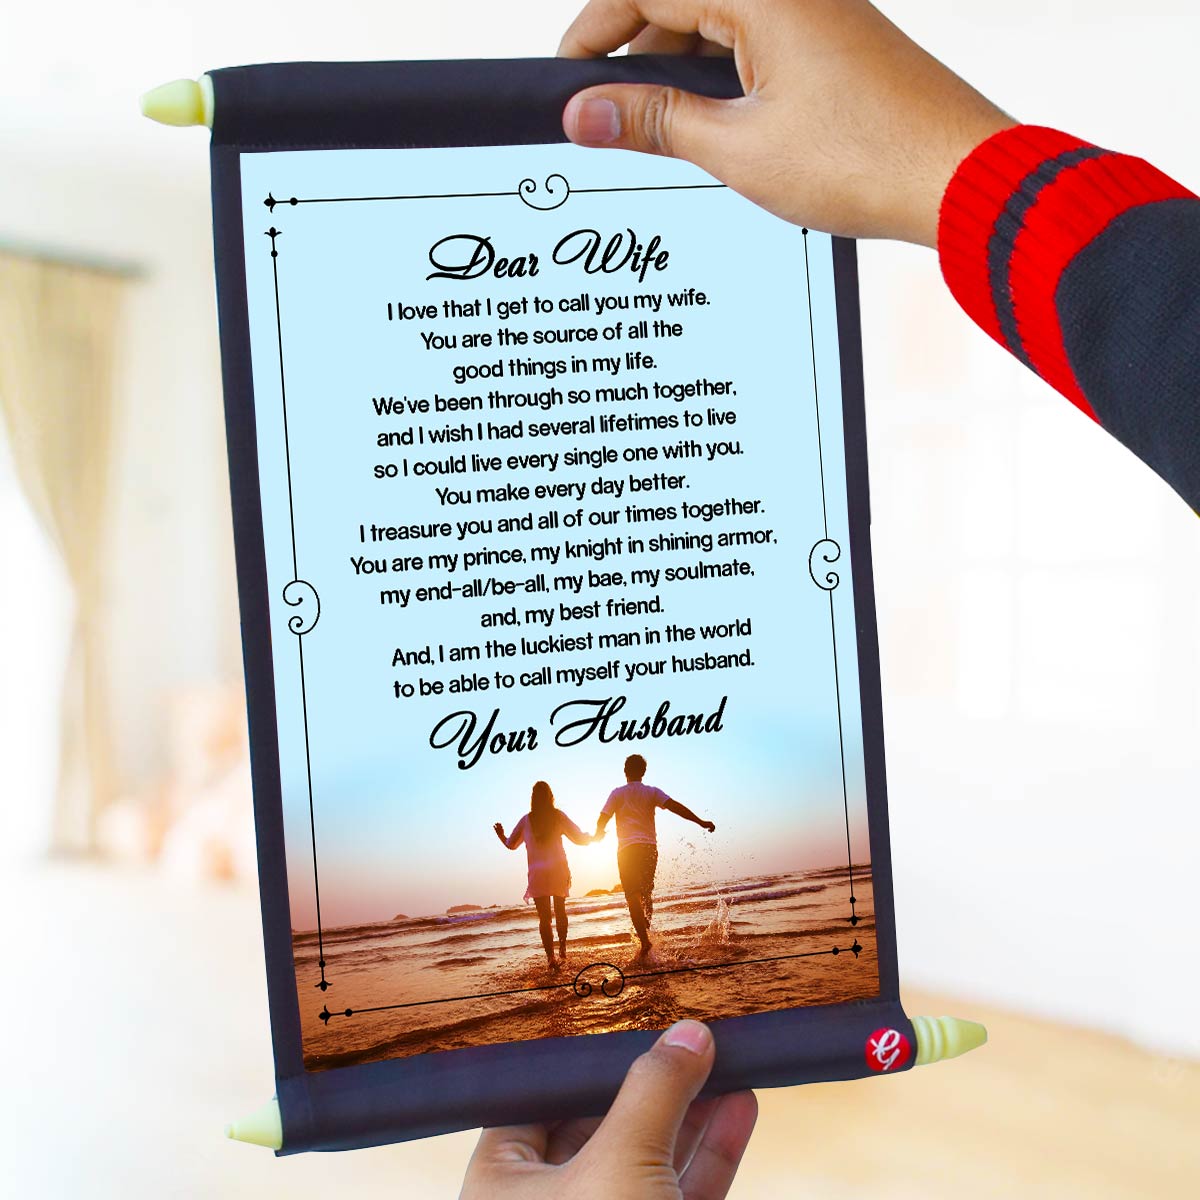 Dear Wife
I love that I get to call you my wife.
You are the source of all the
good things in my life.
We've been through so much together,
and I wish I had several lifetimes to live
so I could live every single one with you.
You make every day better.
I treasure you and all of our times together.
You are my prince, my knight in shining armor,
my end-all/be-all, my bae, my soulmate,
and, my best friend.
And, I am the luckiest man in the world
to be able to call myself your husband.
Your Husband